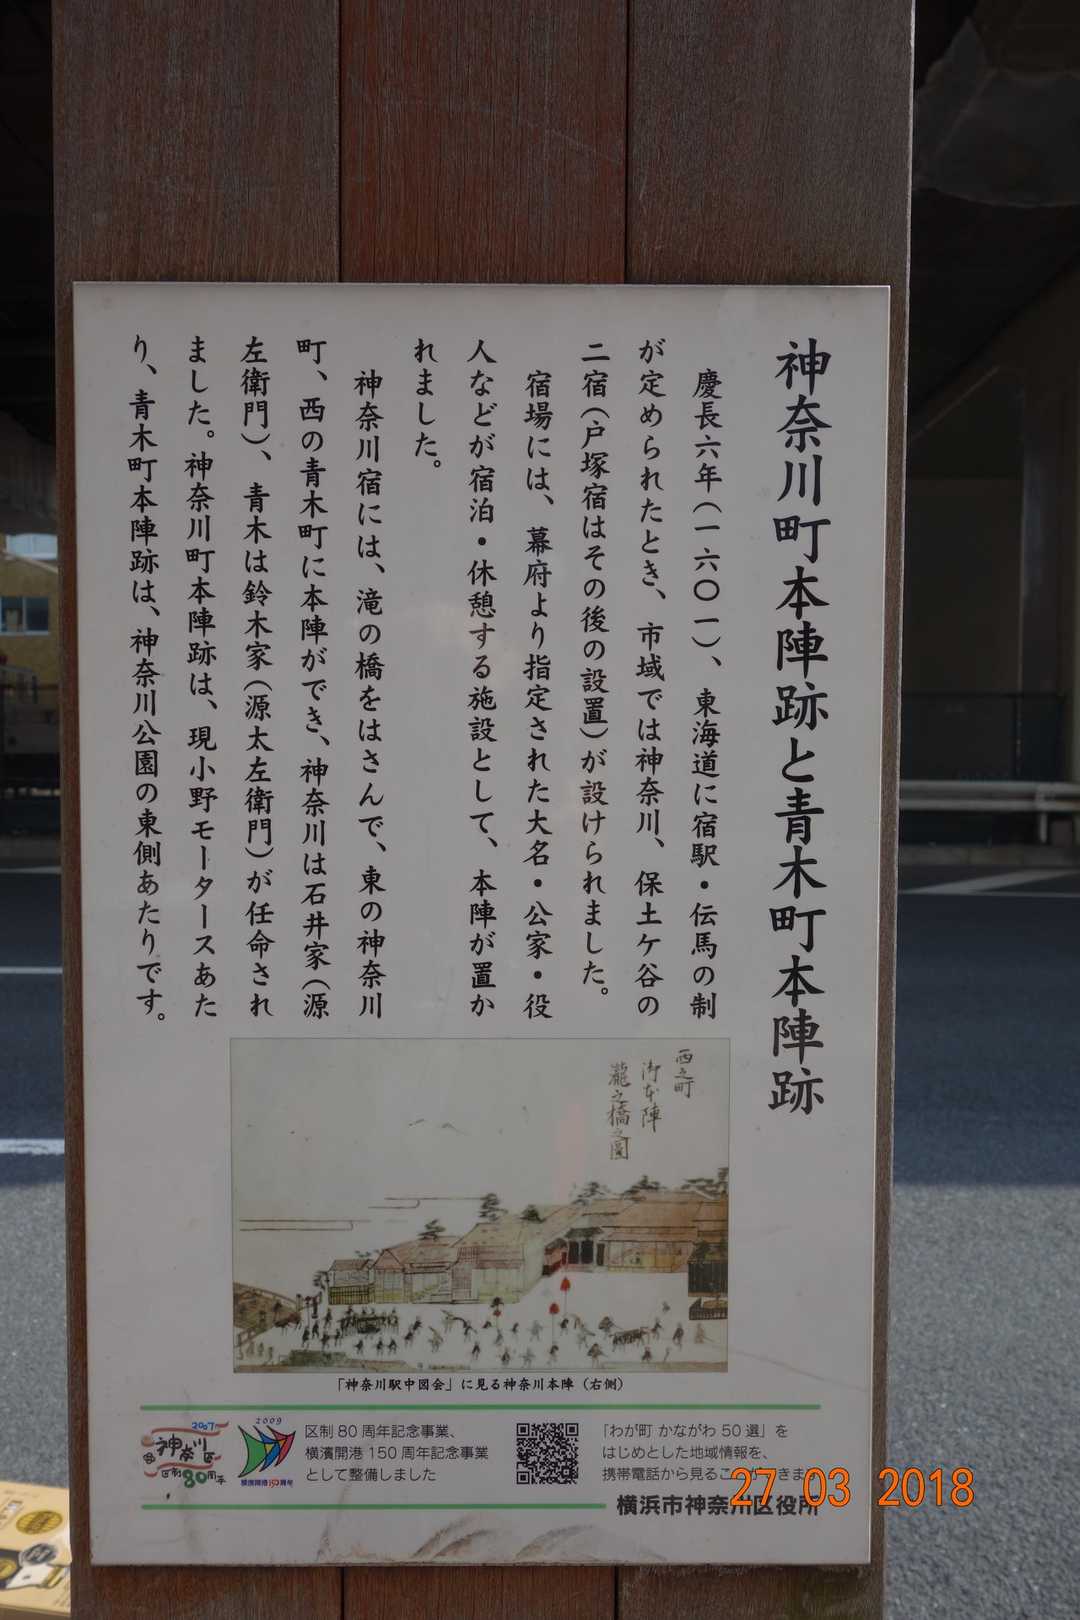 神奈川町本陣跡と青木町本陣跡
慶長六年（一六〇一）、東海道に宿駅・伝馬の制
が定められたとき、市域では神奈川、保土ケ谷の
二宿（戸塚宿はその後の設置）が設けられました。
宿場には、幕府より指定された大名・公家・役
人などが宿泊・休憩する施設として、本陣が置か
れました。
神奈川宿には、滝の橋をはさんで、東の神奈川
町、西の青木町に本陣ができ、神奈川は石井家（源
左衛門）、青木は鈴木家（源太左衛門）が任命され
ました。神奈川町本陣跡は、現小野モータースあた
り、青木町本陣跡は、神奈川公園の東側あたりです。
西之町
御本陣
瀧之橋之圖
「神奈川駅中図会」に見る神奈川本陣（右側）
2007
神奈川区
区制80周年
2009
横浜開港150周年
区制80周年記念事業、
横濱開港150周年記念事業
として整備しました
「わが町 かながわ50選」を
はじめとした地域情報を、
携帯電話から見るこ
きま
横浜市神奈川区役所
27 03 2018